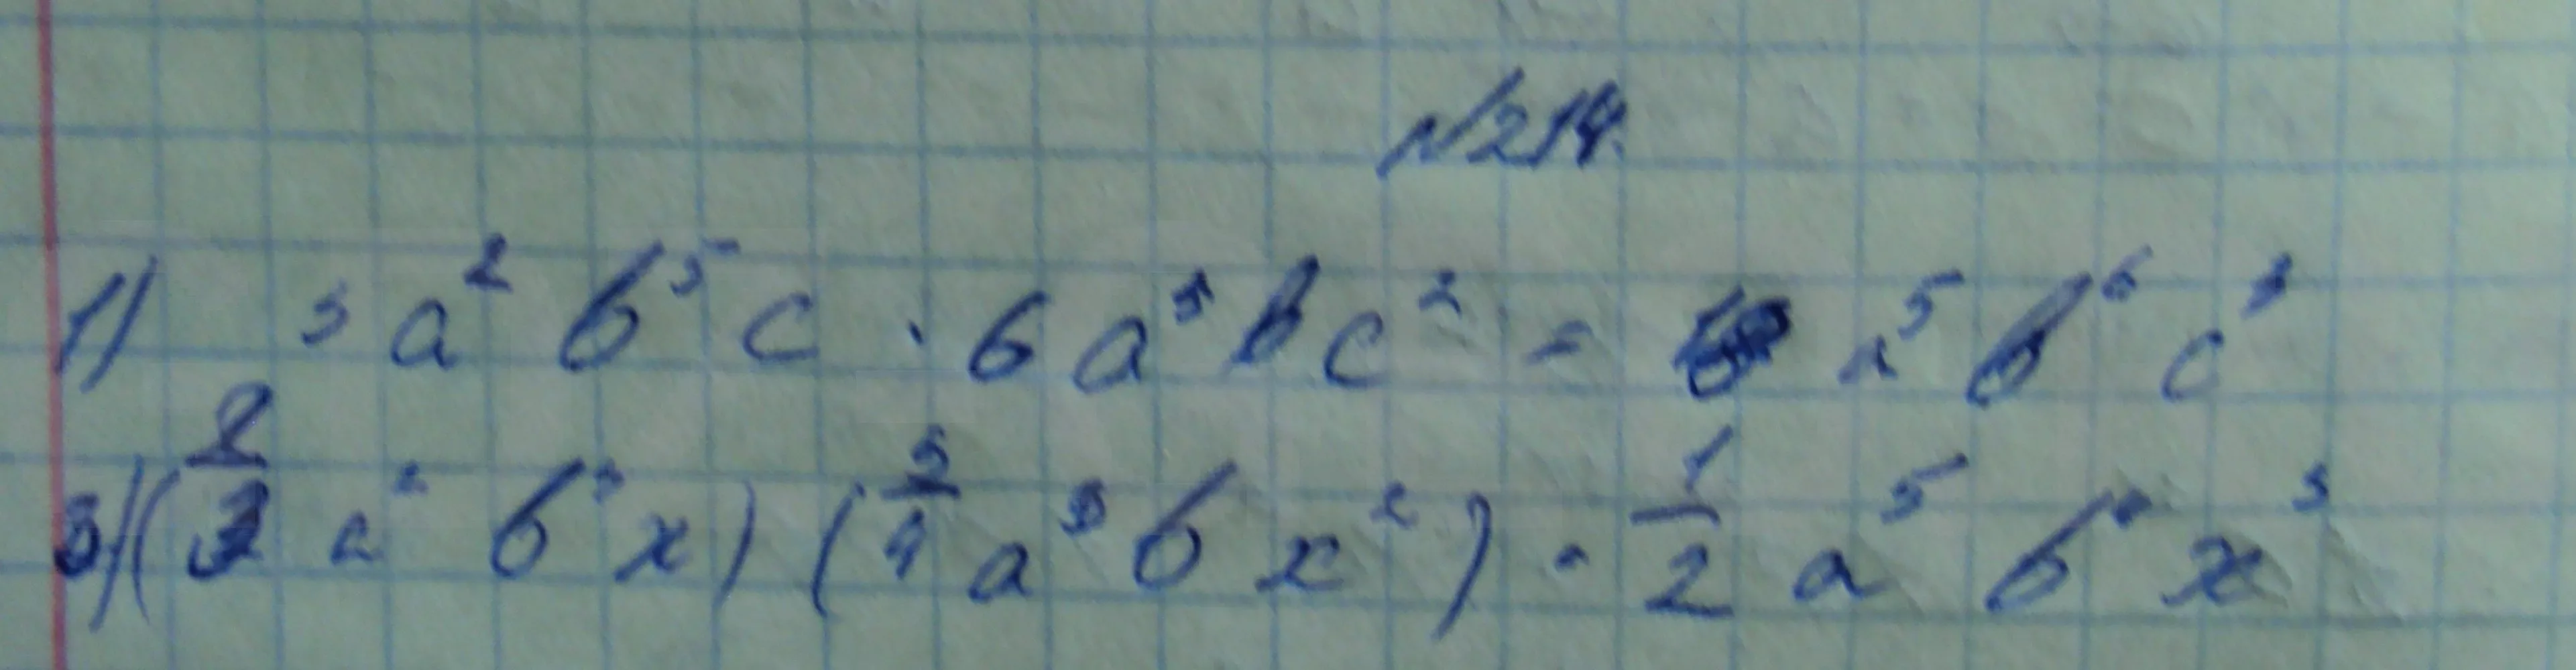 №214.
1) 3a²b⁵c · 6a³bc² = a⁵b⁶c³
3) (2/3 a²b³x) (3/4 a³bx²) = 1/2 a⁵b⁴x³